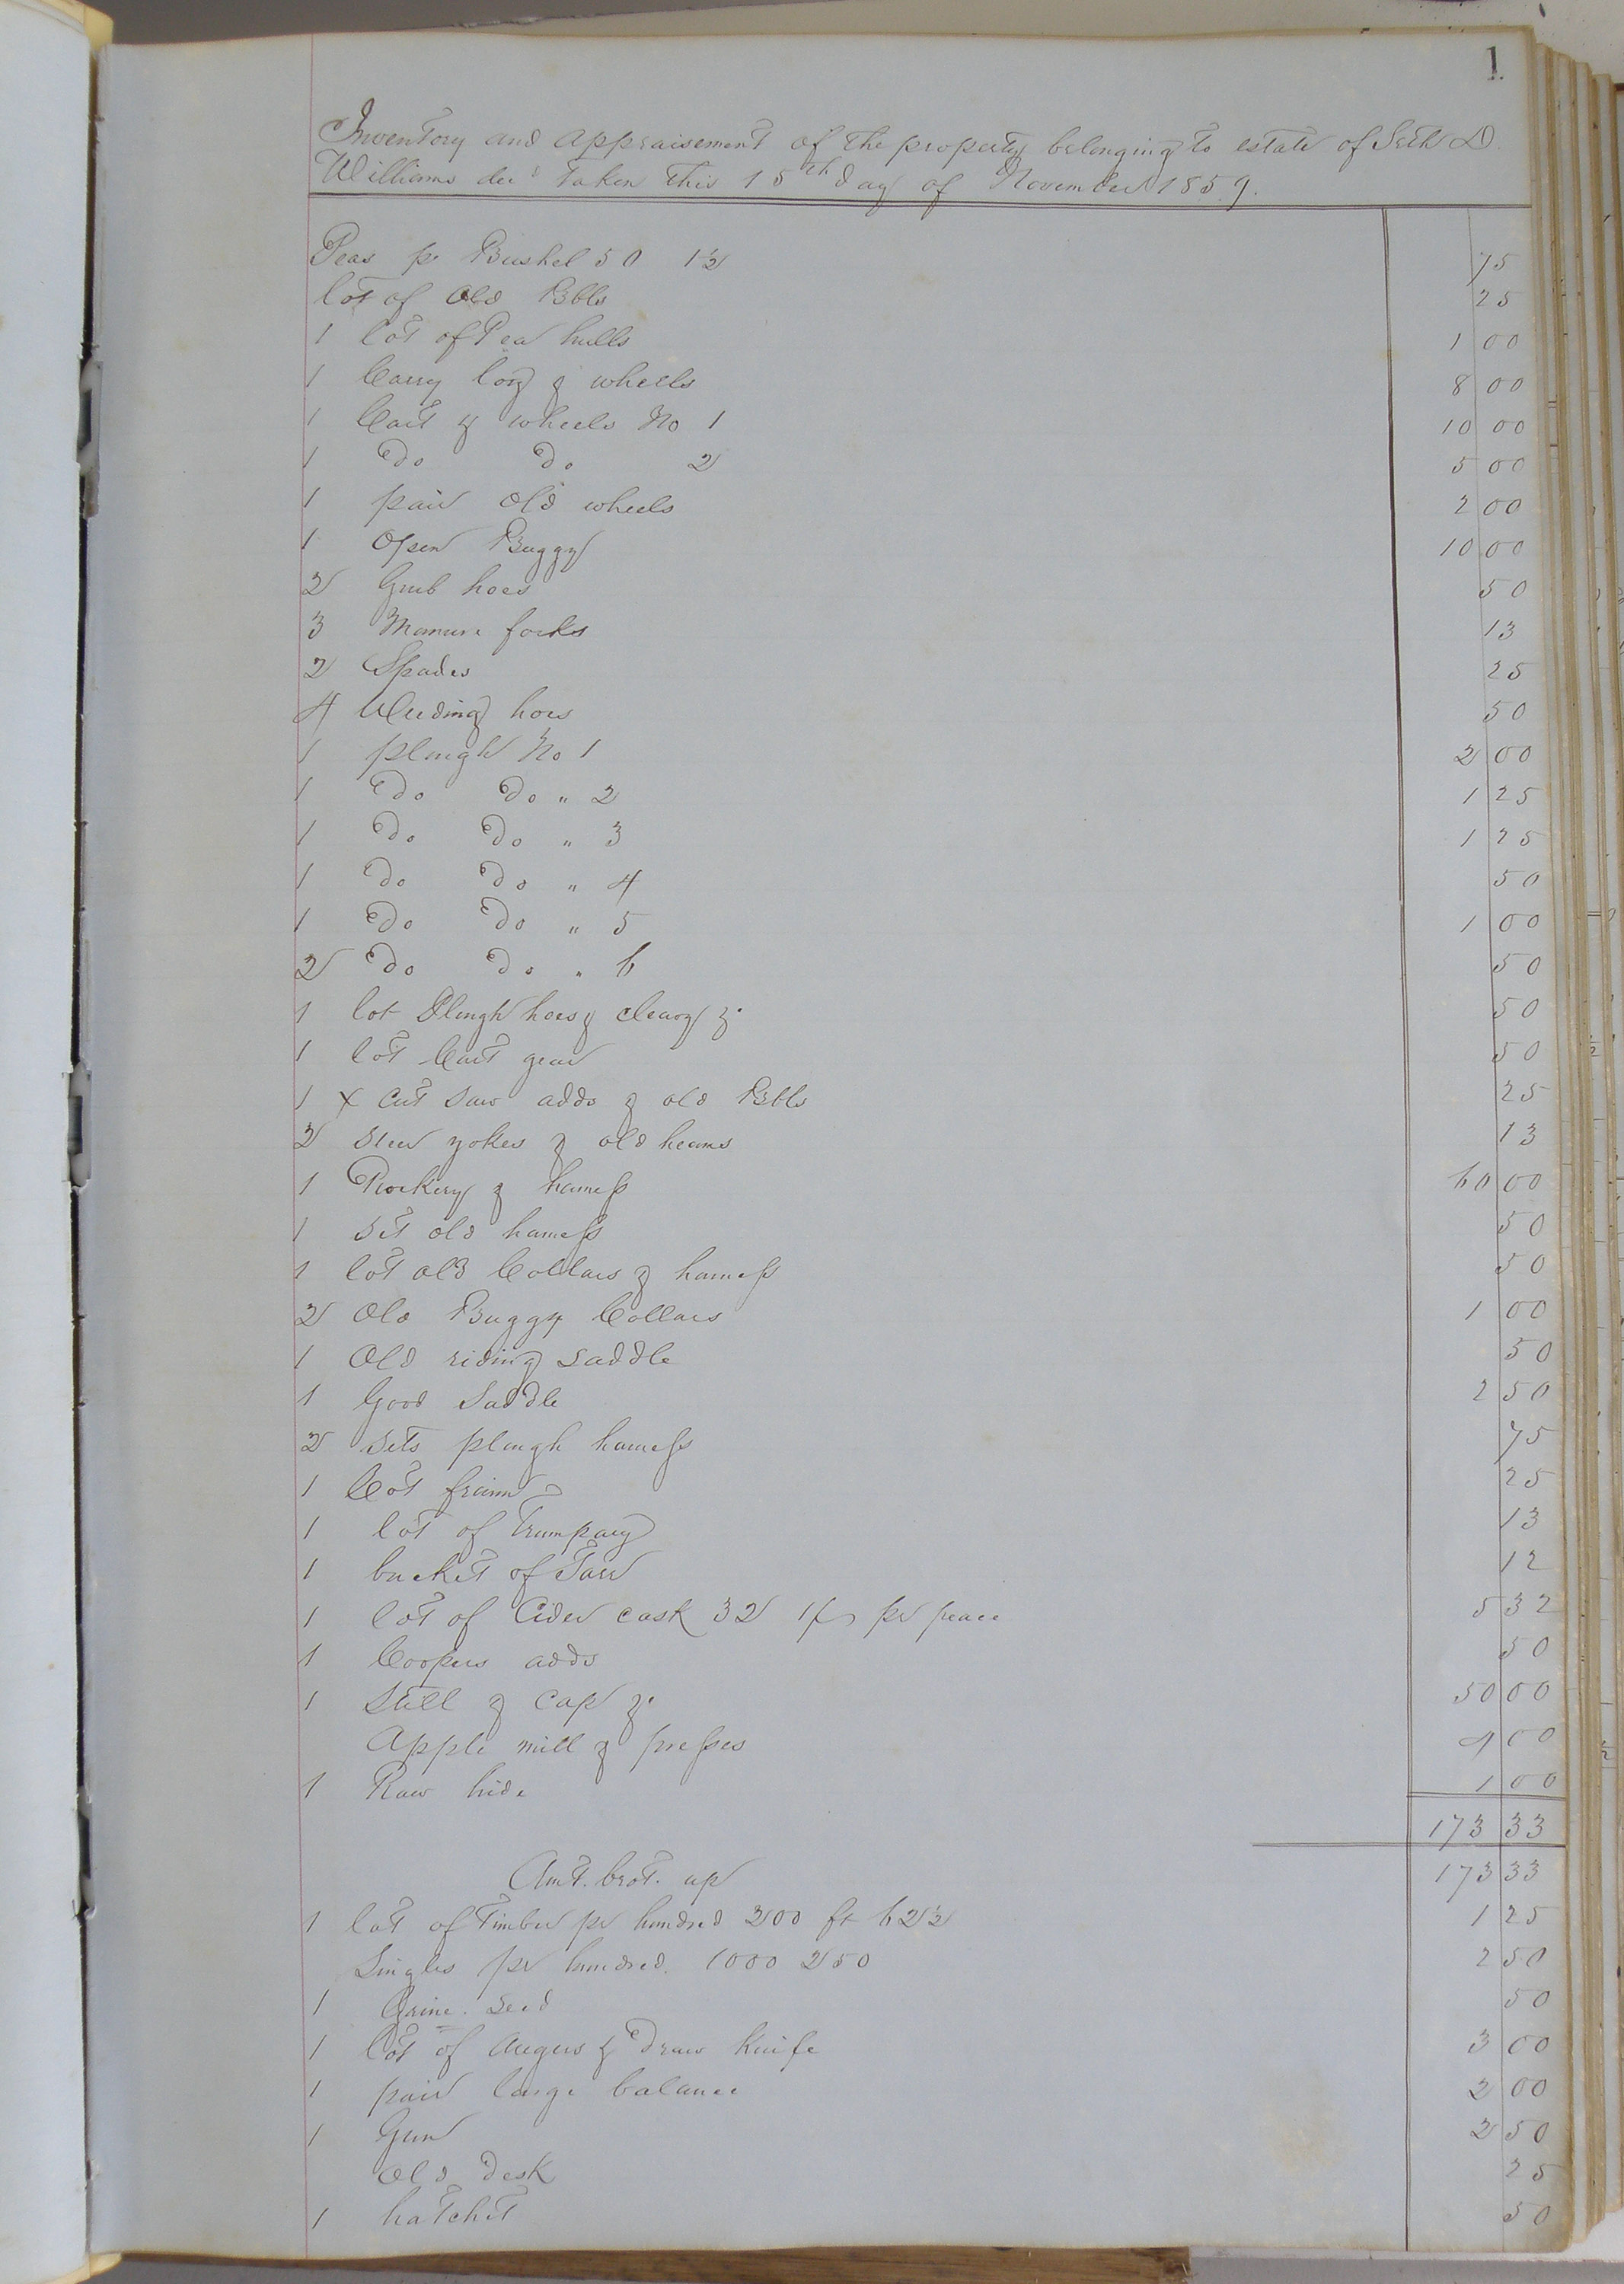 1
Inventory and appraisement of the property belonging to estate of Seth D.
Williams decd taken this 15th day of November 1859.
Peas pr Bushel 50 1½ 75
lot of old Bbls 25
1 lot of Pea hulls 1 00
1 Carry log & wheels 8 00
1 Cart & wheels No 1 10 00
1 Do Do 2 5 00
1 pair old wheels 2 00
1 Open Buggy 10 00
2 Grub hoes 50
3 Manure forks 13
2 Spades 25
4 Weeding hoes 50
1 plough No 1 2 00
1 Do Do " 2 1 25
1 Do Do " 3 1 25
1 Do Do " 4 50
1 Do Do " 5 1 00
2 Do Do " 6 50
1 lot Plough hoes & 50
1 lot Cart gear 50
1 x cut saw adds & old Bbls 25
2 Steer yokes & old heams 13
1 Rockery & harness 60 00
1 set old harness 50
1 lot old Collars & harness 50
2 Old Buggy Collars 1 00
1 Old riding saddle 50
1 Good Saddle 2 50
2 Sets plough harness 75
1 Cot frame 25
1 lot of Trumpary 13
1 bucket of Tarr 12
1 lot of Cider cask 32 pr peace 5 32
1 Coopers adds 50
1 Still & cap &c 50 00
Apple mill & presses 4 00
1 Raw hide 1 00
173 33
Amt. brot. up 173 33
1 lot of Timber pr hundred 200 ft 62½ 1 25
Singles pr hundred. 1000 250 2 50
1 seed 50
1 lot of augurs & Draw Knife 3 00
1 pair large balance 2 00
1 Gun 2 50
Old Desk 25
1 hatchet 50